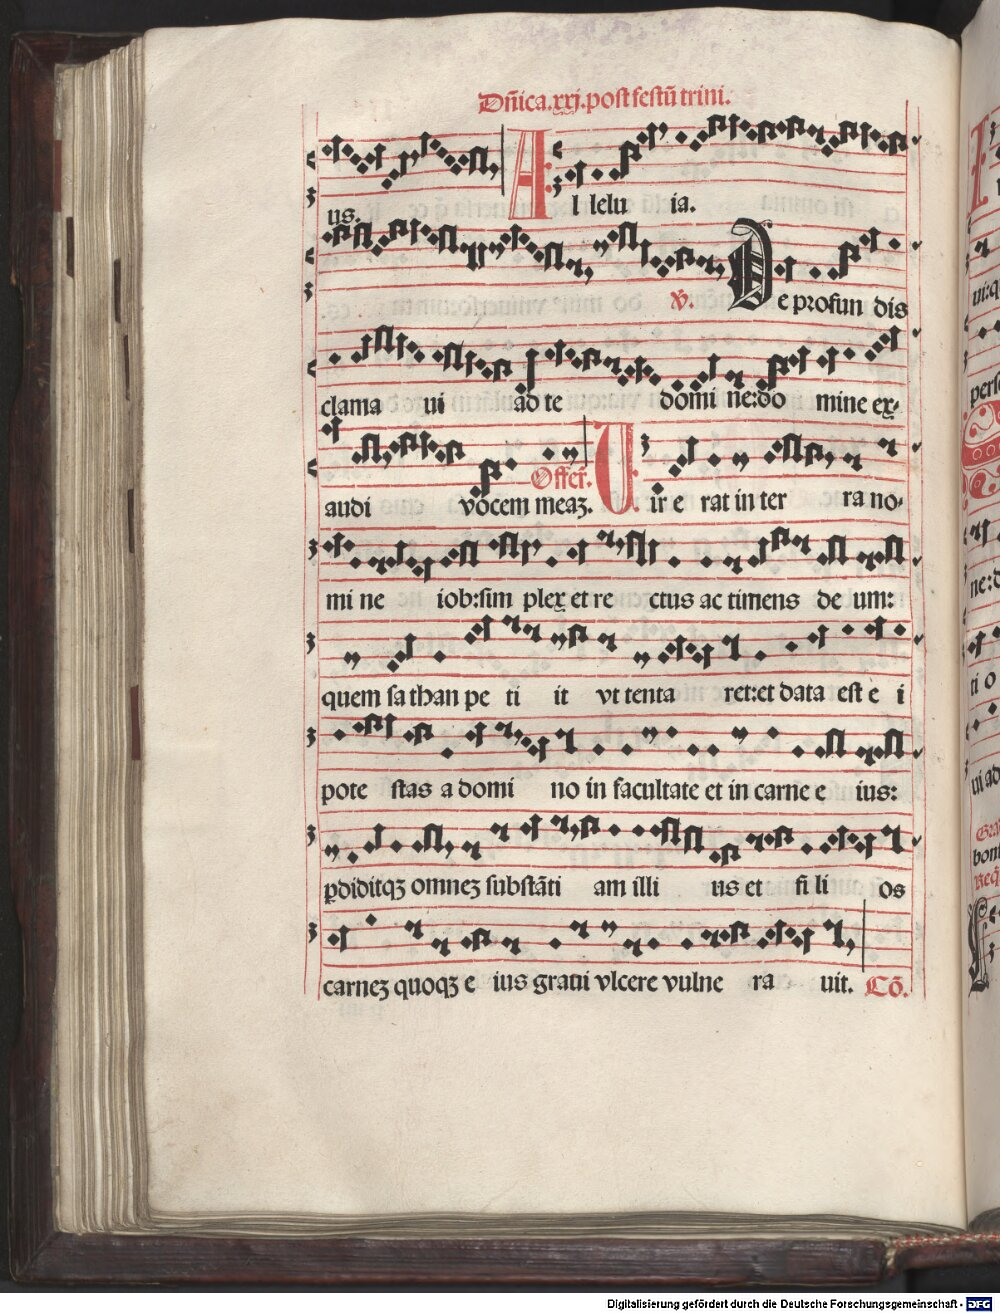 Dñica.xxj.post festũ trini.
us. Al lelu ia.
℣. De profun dis
clama ui ad te domi ne:do mine ex-
audi vocem meaꝫ. Offer. Uir e rat in ter ra no-
mi ne iob:sim plex et re ctus ac timens de um:
quem sathan pe ti it vt tenta ret:et data est e i
pote stas a domi no in facultate et in carne e ius:
ꝑdiditqꝫ omneꝫ substãti am illi us et fi li os
carneꝫ quoqꝫ e ius graui vlcere vulne ra uit. Cõ.
Digitalisierung gefördert durch die Deutsche Forschungsgemeinschaft - DFG